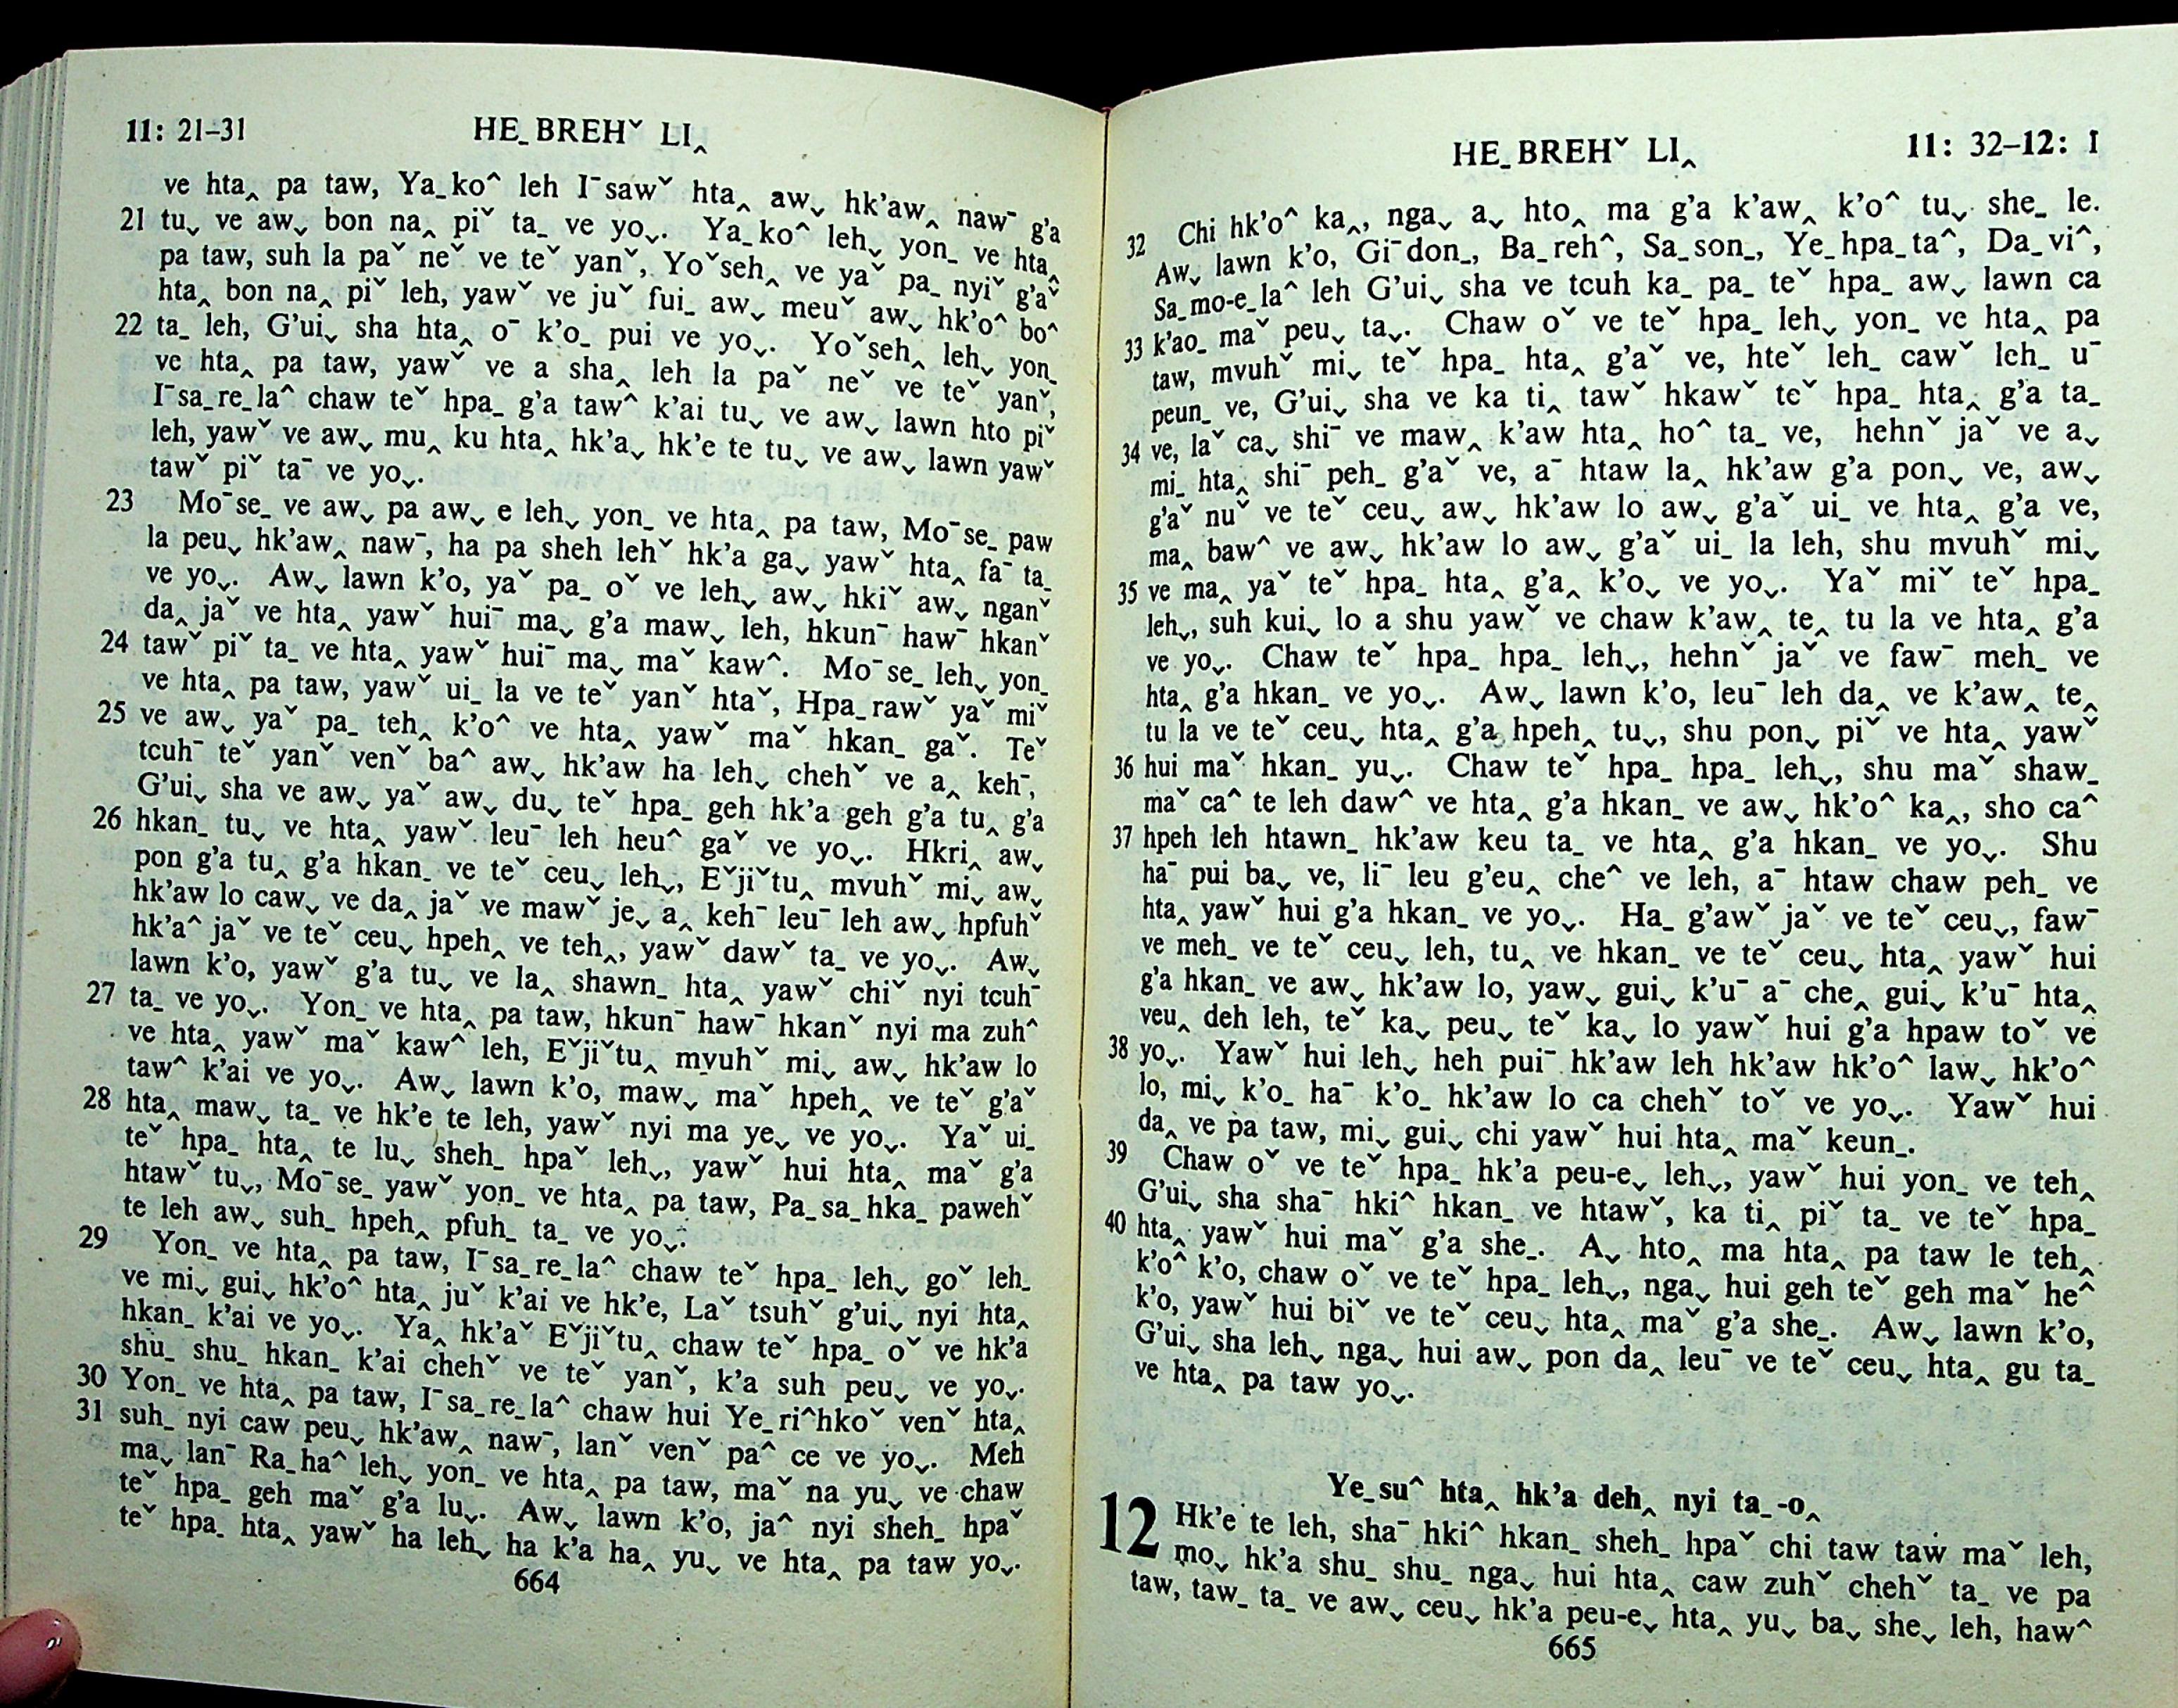 11: 21–31
HE˗ BREHˇ LI‸
ve hta‸ pa taw, Ya˗ko^ leh I¯sawˇ hta‸ aw⌄ hk’aw‸ naw¯ g’a
21 tu⌄ ve aw⌄ bon na‸ piˇ ta˗ ve yo⌄. Ya˗ko^ leh⌄ yon˗ ve hta‸
pa taw, suh la paˇ neˇ ve teˇ yanˇ, Yoˇseh‸ ve yaˇ pa˗ nyiˇ g’aˇ
hta‸ bon na‸ piˇ leh, yawˇ ve juˇ fui˗ aw⌄ meuˇ aw⌄ hk’o^ bo^
22 ta˗ leh, G’ui⌄ sha hta‸ o¯ k’o˗ pui ve yo⌄. Yoˇseh‸ leh⌄ yon˗
ve hta‸ pa taw, yawˇ ve a sha‸ leh la paˇ neˇ ve teˇ yanˇ,
I¯sa˗re˗la^ chaw teˇ hpa˗ g’a taw^ k’ai tu⌄ ve aw⌄ lawn hto piˇ
leh, yawˇ ve aw⌄ mu‸ ku hta‸ hk’a⌄ hk’e te tu⌄ ve aw⌄ lawn yawˇ
tawˇ piˇ ta¯ ve yo⌄.
23 Mo¯se˗ ve aw⌄ pa aw⌄ e leh⌄ yon˗ ve hta‸ pa taw, Mo¯se˗ paw
la peu⌄ hk’aw‸ naw¯, ha pa sheh lehˇ hk’a ga⌄ yawˇ hta‸ fa¯ ta˗
ve yo⌄. Aw⌄ lawn k’o, yaˇ pa˗ oˇ ve leh⌄ aw⌄ hkiˇ aw⌄ nganˇ
da‸ jaˇ ve hta‸ yawˇ hui¯ ma⌄ g’a maw⌄ leh, hkun¯ haw¯ hkanˇ
24 tawˇ piˇ ta˗ ve hta‸ yawˇ hui¯ ma⌄ maˇ kaw^. Mo¯se˗ leh⌄ yon˗
ve hta‸ pa taw, yawˇ ui˗ la ve teˇ yanˇ htaˇ, Hpa˗rawˇ yaˇ miˇ
25 ve aw⌄ yaˇ pa˗ teh‸ k’o^ ve hta‸ yawˇ maˇ hkan˗ gaˇ. Teˇ
tcuh¯ teˇ yanˇ venˇ ba^ aw⌄ hk’aw ha leh⌄ chehˇ ve a‸ keh¯,
G’ui⌄ sha ve aw⌄ yaˇ aw⌄ du⌄ teˇ hpa˗ geh hk’a geh g’a tu‸ g’a
26 hkan˗ tu⌄ ve hta‸ yawˇ leu¯ leh heu^ gaˇ ve yo⌄. Hkri‸ aw⌄
pon g’a tu‸ g’a hkan˗ ve teˇ ceu⌄ leh⌄, Eˇjiˇtu‸ mvuhˇ mi⌄ aw⌄
hk’aw lo caw⌄ ve da‸ jaˇ ve mawˇ je⌄ a‸ keh¯ leu¯ leh aw⌄ hpfuhˇ
hk’a^ jaˇ ve teˇ ceu⌄ hpeh‸ ve teh‸, yawˇ dawˇ ta˗ ve yo⌄. Aw⌄
lawn k’o, yawˇ g’a tu⌄ ve la‸ shawn˗ hta‸ yawˇ chiˇ nyi tcuh¯
27 ta˗ ve yo⌄. Yon˗ ve hta‸ pa taw, hkun¯ haw¯ hkanˇ nyi ma zuh^
ve hta‸ yawˇ maˇ kaw^ leh, Eˇjiˇtu‸ mvuhˇ mi⌄ aw⌄ hk’aw lo
taw^ k’ai ve yo⌄. Aw⌄ lawn k’o, maw⌄ maˇ hpeh‸ ve teˇ g’aˇ
28 hta‸ maw⌄ ta˗ ve hk’e te leh, yawˇ nyi ma ye⌄ ve yo⌄. Yaˇ ui˗
teˇ hpa˗ hta‸ te lu⌄ sheh˗ hpaˇ leh⌄, yawˇ hui hta‸ maˇ g’a
htawˇ tu⌄, Mo¯se˗ yawˇ yon˗ ve hta‸ pa taw, Pa˗sa˗hka˗ pawehˇ
te leh aw⌄ suh˗ hpeh‸ pfuh˗ ta˗ ve yo⌄.
29 Yon˗ ve hta‸ pa taw, I¯sa˗re˗la^ chaw teˇ hpa˗ leh⌄ goˇ leh˗
ve mi⌄ gui⌄ hk’o^ hta‸ juˇ k’ai ve hk’e, Laˇ tsuhˇ g’ui⌄ nyi hta‸
hkan˗ k’ai ve yo⌄. Ya‸ hk’aˇ Eˇjiˇtu‸ chaw teˇ hpa˗ oˇ ve hk’a
shu˗ shu˗ hkan˗ k’ai chehˇ ve teˇ yanˇ, k’a suh peu⌄ ve yo⌄.
30 Yon˗ ve hta‸ pa taw, I¯sa˗re˗la^ chaw hui Ye˗ri^hkoˇ venˇ hta‸
31 suh˗ nyi caw peu⌄ hk’aw‸ naw¯, lanˇ venˇ pa^ ce ve yo⌄. Meh
ma⌄ lan¯ Ra˗ha^ leh⌄ yon˗ ve hta‸ pa taw, maˇ na yu⌄ ve chaw
teˇ hpa˗ geh maˇ g’a lu⌄. Aw⌄ lawn k’o, ja^ nyi sheh˗ hpaˇ
teˇ hpa˗ hta‸ yawˇ ha leh⌄ ha k’a ha‸ yu⌄ ve hta‸ pa taw yo⌄.
664
HE˗ BREHˇ LI‸
11: 32–12: 1
32 Chi hk’o^ ka‸, nga⌄ a⌄ hto‸ ma g’a k’aw‸ k’o^ tu⌄ she˗ le.
Aw⌄ lawn k’o, Gi¯don˗, Ba˗reh^, Sa˗son˗, Ye˗hpa˗ta^, Da˗vi^,
Sa˗mo-e˗la^ leh G’ui⌄ sha ve tcuh ka˗ pa˗ teˇ hpa˗ aw⌄ lawn ca
33 k’ao˗ maˇ peu⌄ ta⌄. Chaw oˇ ve teˇ hpa˗ leh⌄ yon˗ ve hta‸ pa
taw, mvuhˇ mi⌄ teˇ hpa˗ hta‸ g’aˇ ve, hteˇ leh˗ cawˇ leh˗ u¯
peun˗ ve, G’ui⌄ sha ve ka ti‸ tawˇ hkawˇ teˇ hpa˗ hta‸ g’a ta˗
34 ve, laˇ ca⌄ shi¯ ve maw‸ k’aw hta‸ ho^ ta˗ ve, hehnˇ jaˇ ve a⌄
mi˗ hta‸ shi¯ peh˗ g’aˇ ve, a¯ htaw la‸ hk’aw g’a pon⌄ ve, aw⌄
g’aˇ nuˇ ve teˇ ceu⌄ aw⌄ hk’aw lo aw⌄ g’aˇ ui˗ ve hta‸ g’a ve,
ma‸ baw^ ve aw⌄ hk’aw lo aw⌄ g’aˇ ui˗ la leh, shu mvuhˇ mi⌄
35 ve ma‸ yaˇ teˇ hpa˗ hta‸ g’a‸ k’o⌄ ve yo⌄. Yaˇ miˇ teˇ hpa˗
leh⌄, suh kui⌄ lo a shu yawˇ ve chaw k’aw‸ te‸ tu la ve hta‸ g’a
ve yo⌄. Chaw teˇ hpa˗ hpa˗ leh⌄, hehnˇ jaˇ ve faw¯ meh˗ ve
hta‸ g’a hkan˗ ve yo⌄. Aw⌄ lawn k’o, leu¯ leh da‸ ve k’aw‸ te‸
tu la ve teˇ ceu⌄ hta‸ g’a hpeh‸ tu⌄, shu pon⌄ piˇ ve hta‸ yawˇ
36 hui maˇ hkan˗ yu⌄. Chaw teˇ hpa˗ hpa˗ leh⌄, shu maˇ shaw˗
maˇ ca^ te leh daw^ ve hta‸ g’a hkan˗ ve aw⌄ hk’o^ ka‸, sho ca^
37 hpeh leh htawn˗ hk’aw keu ta˗ ve hta‸ g’a hkan˗ ve yo⌄. Shu
ha¯ pui ba⌄ ve, li¯ leu g’eu‸ che^ ve leh, a¯ htaw chaw peh˗ ve
hta‸ yawˇ hui g’a hkan˗ ve yo⌄. Ha˗ g’awˇ jaˇ ve teˇ ceu⌄, faw¯
ve meh˗ ve teˇ ceu⌄ leh, tu‸ ve hkan˗ ve teˇ ceu⌄ hta‸ yawˇ hui
g’a hkan˗ ve aw⌄ hk’aw lo, yaw⌄ gui⌄ k’u¯ a¯ che‸ gui⌄ k’u¯ hta‸
veu‸ deh leh, teˇ ka⌄ peu⌄ teˇ ka⌄ lo yawˇ hui g’a hpaw toˇ ve
38 yo⌄. Yawˇ hui leh⌄ heh pui¯ hk’aw leh hk’aw hk’o^ law⌄ hk’o^
lo, mi⌄ k’o˗ ha¯ k’o˗ hk’aw lo ca chehˇ toˇ ve yo⌄. Yawˇ hui
da‸ ve pa taw, mi⌄ gui⌄ chi yawˇ hui hta‸ maˇ keun˗.
39 Chaw oˇ ve teˇ hpa˗ hk’a peu-e⌄ leh⌄, yawˇ hui yon˗ ve teh‸
G’ui⌄ sha sha¯ hki^ hkan˗ ve htawˇ, ka ti‸ piˇ ta˗ ve teˇ hpa˗
40 hta‸ yawˇ hui maˇ g’a she˗. A⌄ hto‸ ma hta‸ pa taw le teh‸
k’o^ k’o, chaw oˇ ve teˇ hpa˗ leh⌄, nga⌄ hui geh teˇ geh maˇ he^
k’o, yawˇ hui biˇ ve teˇ ceu⌄ hta‸ maˇ g’a she˗. Aw⌄ lawn k’o,
G’ui⌄ sha leh⌄ nga⌄ hui aw⌄ pon da‸ leu¯ ve teˇ ceu⌄ hta‸ gu ta˗
ve hta‸ pa taw yo⌄.
Ye˗su^ hta‸ hk’a deh‸ nyi ta˗-o‸
12 Hk’e te leh, sha¯ hki^ hkan˗ sheh˗ hpaˇ chi taw taw maˇ leh,
mo⌄ hk’a shu˗ shu˗ nga⌄ hui hta‸ caw zuhˇ chehˇ ta˗ ve pa
taw, taw˗ ta˗ ve aw⌄ ceu⌄ hk’a peu-e⌄ hta‸ yu⌄ ba⌄ she⌄ leh, haw^
665